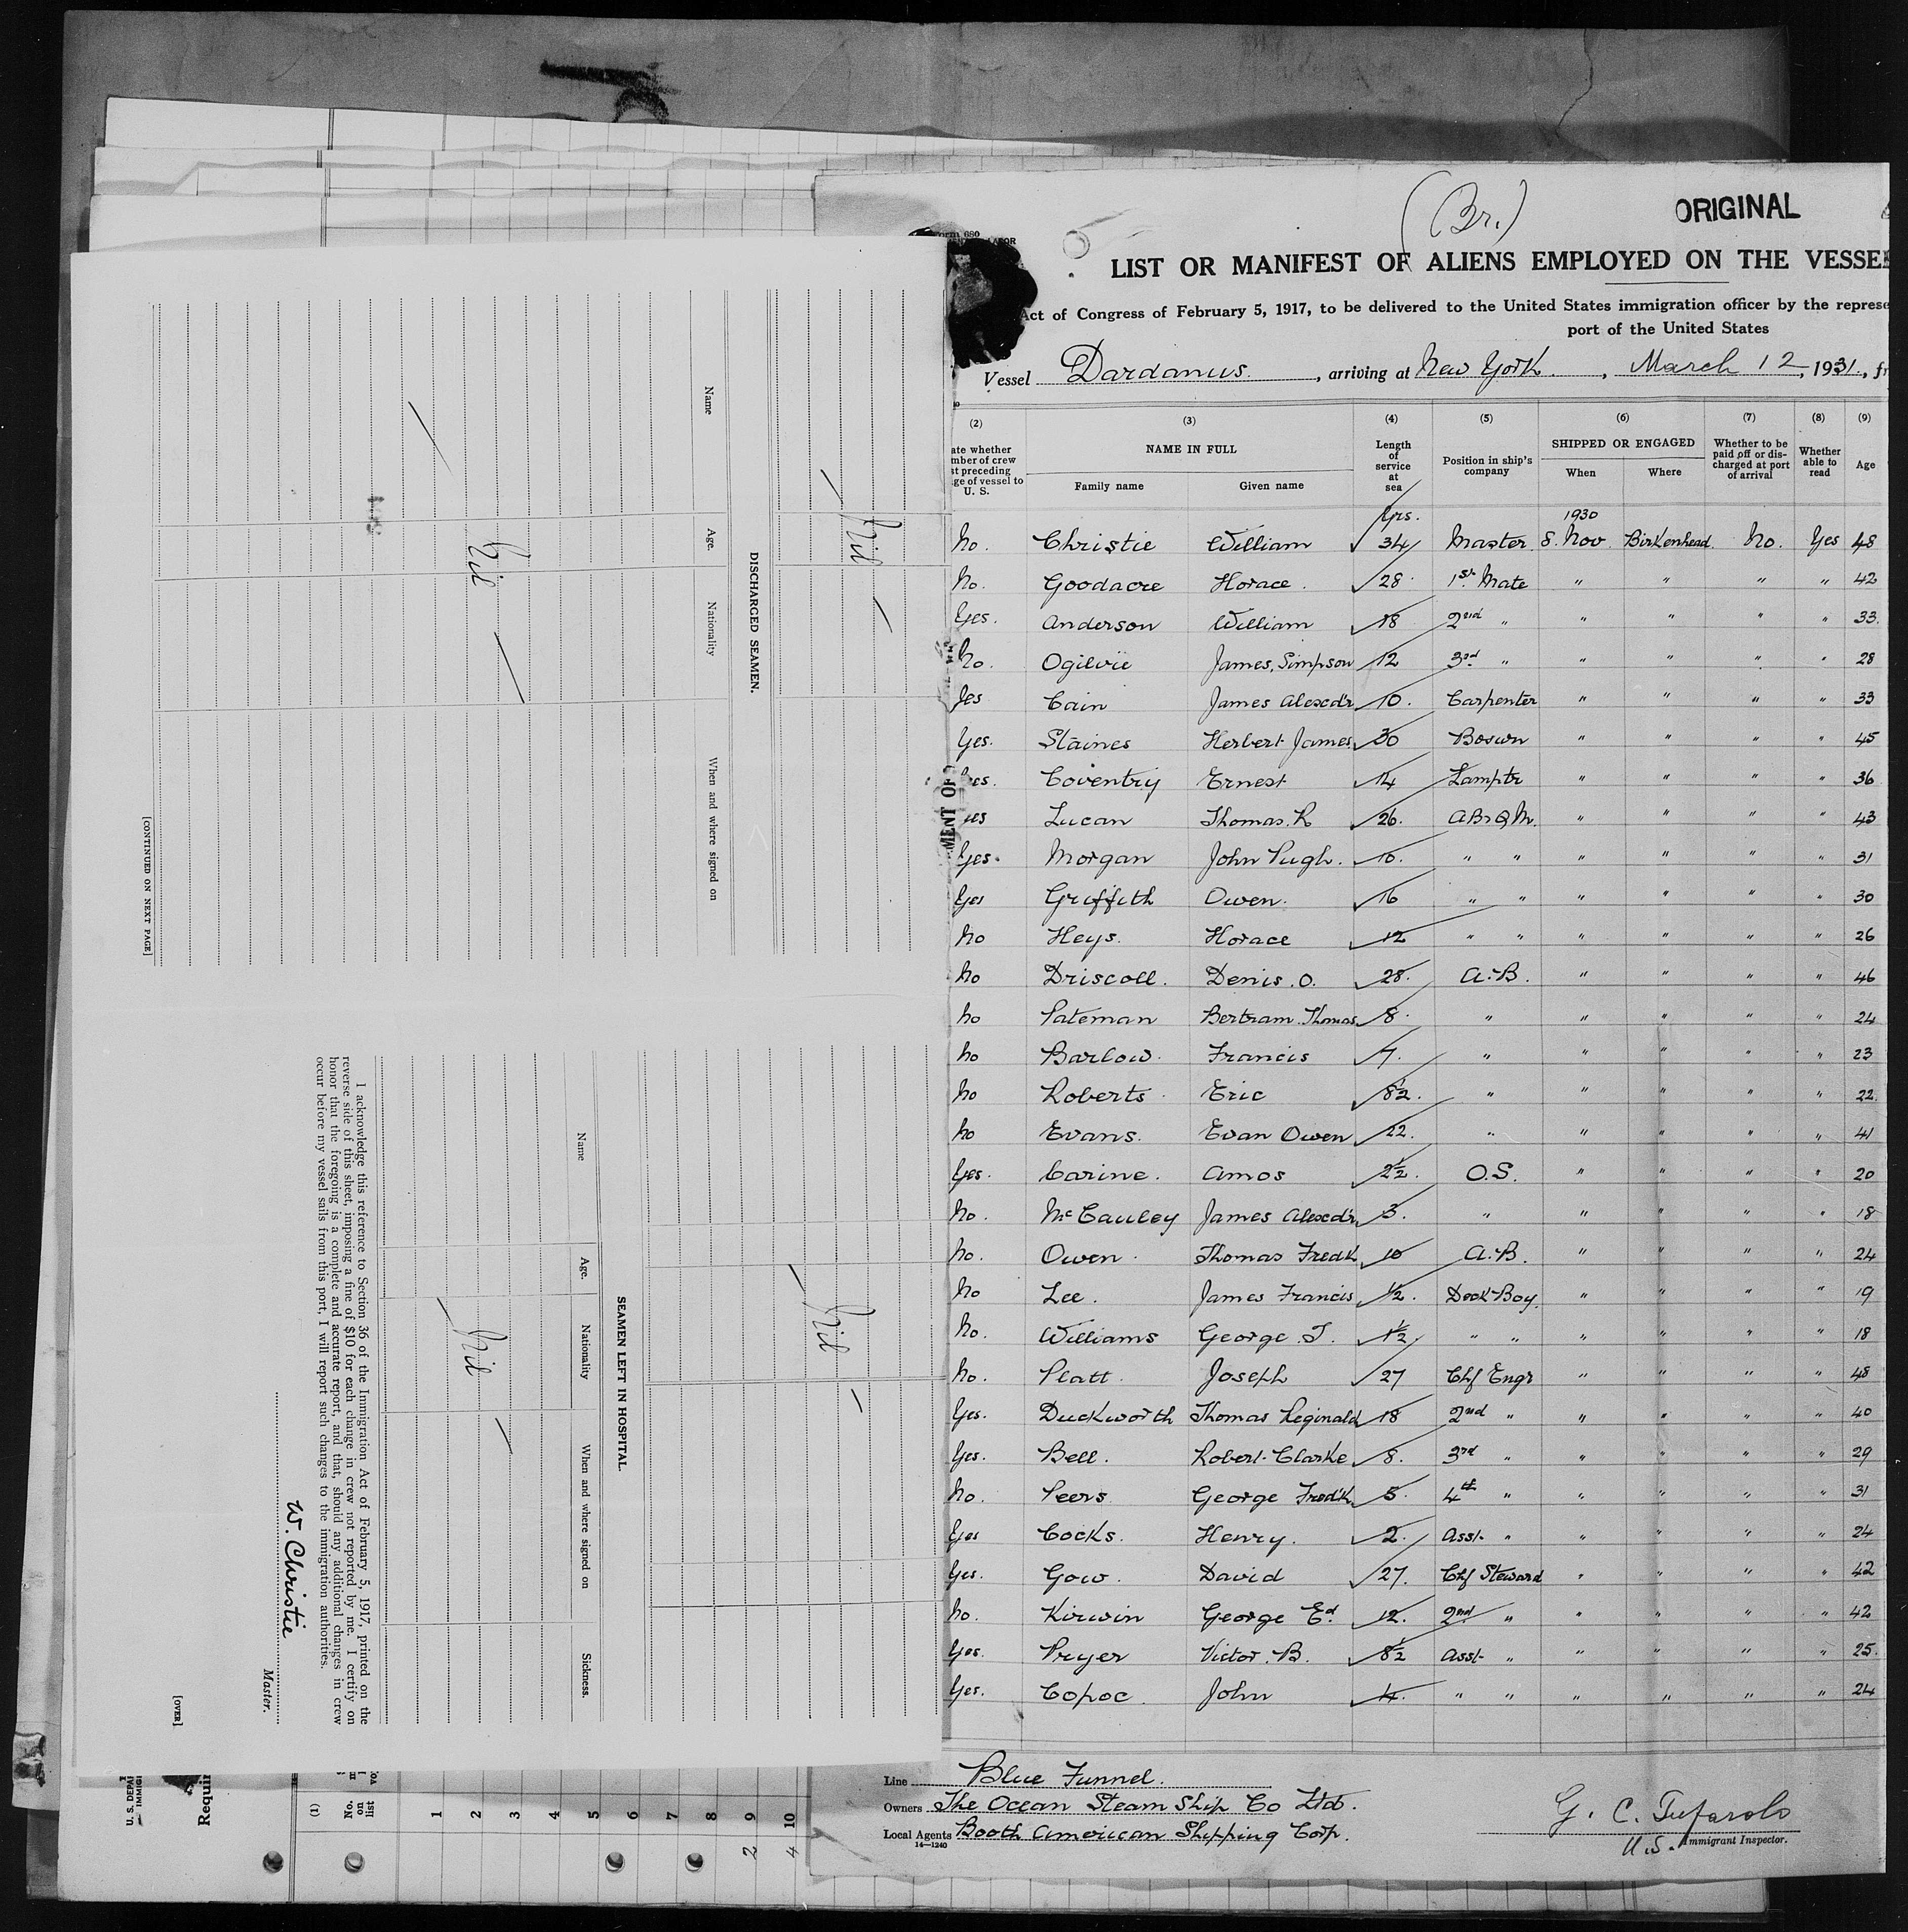 (Br.)
ORIGINAL
LIST OR MANIFEST OF ALIENS EMPLOYED ON THE VESSEL
Act of Congress of February 5, 1917, to be delivered to the United States immigration officer by the represe
port of the United States
Vessel Dardanus, arriving at New York, March 12, 1931, fr
(2) (3) (4) (5) (6) (7) (8) (9)
ate whether mber of crew st preceding ge of vessel to U. S.
NAME IN FULL
Family name Given name
Length of service at sea
Position in ship's company
SHIPPED OR ENGAGED
When Where
Whether to be paid off or discharged at port of arrival
Whether able to read
Age
Yrs. 1930
No. Christie William 34 Master 8. Nov. Birkenhead. No. Yes 48
No. Goodacre Horace. 28 1st Mate " " " " 42
Yes. Anderson William 18 2nd " " " " " 33.
No. Ogilvie James, Simpson 12 3rd " " " " " 28
Yes Cain James Alexdr 10. Carpenter " " " " 33
Yes. Staines Herbert James 30 Boswn " " " " 45
Yes. Coventry Ernest 14 Lamptr " " " " 36
Yes Lucan Thomas. R 26. AB & Q M. " " " " 43
Yes. Morgan John Pugh. 10. " " " " " " 31
Yes Griffith Owen. 16 " " " " " " 30
No Heys. Horace 12 " " " " " " 26
No Driscoll. Denis. O. 28. A.B. " " " " 46
No Pateman Bertram. Thomas 8. " " " " " 24
No Barlow. Francis 7. " " " " " 23
No Roberts. Eric 8½. " " " " " 22.
No Evans. Evan Owen 22. " " " " " 41
Yes. Carine. Amos 2½. O.S. " " " " 20
No. McCauley James Alexdr 3. " " " " " 18
No. Owen. Thomas Fredk 10 A.B. " " " " 24
No Lee. James Francis ½. Deck Boy. " " " " 19
No. Williams George. T. 1½. " " " " " " 18
No. Platt. Joseph 27 Chf Engr " " " " 48
Yes. Duckworth Thomas Reginald 18 2nd " " " " " 40
Yes. Bell. Robert Clarke 8. 3rd " " " " " 29
No. Peers George Fredk 5. 4th " " " " " 31
Yes Cocks. Henry. 2. Asst. " " " " " 24
Yes. Gow. David 27. Chf Steward " " " " 42
No. Kirwin George Ed. 12. 2nd " " " " " 42
Yes. Pryer Victor. B. 8½ Asst. " " " " " 25.
Yes. Copoc John 4. " " " " " " 24
Line Blue Funnel.
Owners The Ocean Steam Ship Co Ltd.
Local Agents Booth American Shipping Corp.
14—1240
U.S. Immigrant Inspector.
— Nil —
DISCHARGED SEAMEN.
Name Age. Nationality When and where signed on
— Nil —
[CONTINUED ON NEXT PAGE]
— Nil —
SEAMEN LEFT IN HOSPITAL.
Name Age. Nationality When and where signed on Sickness.
— Nil —
I acknowledge this reference to Section 36 of the Immigration Act of February 5, 1917, printed on the
reverse side of this sheet, imposing a fine of $10 for each change in crew not reported by me. I certify on
honor that the foregoing is a complete and accurate report, and that, should any additional changes in crew
occur before my vessel sails from this port, I will report such changes to the immigration authorities.
W. Christie
Master.
[OVER]
U. S. DEPA
IMMIG
Requir
(1)
No. on list
1
2
3
4
5
6
7
8
9
10